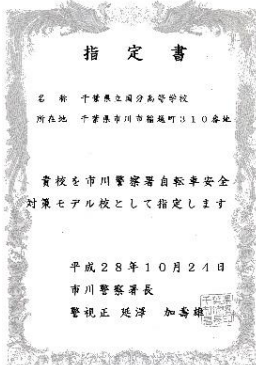 指定書
名称 千葉県立国分高等学校
所在地 千葉県市川市稲越町310番地
貴校を市川警察署自転車安全
対策モデル校として指定します
平成28年10月24日
市川警察署長
警視正 延澤 加寿雄